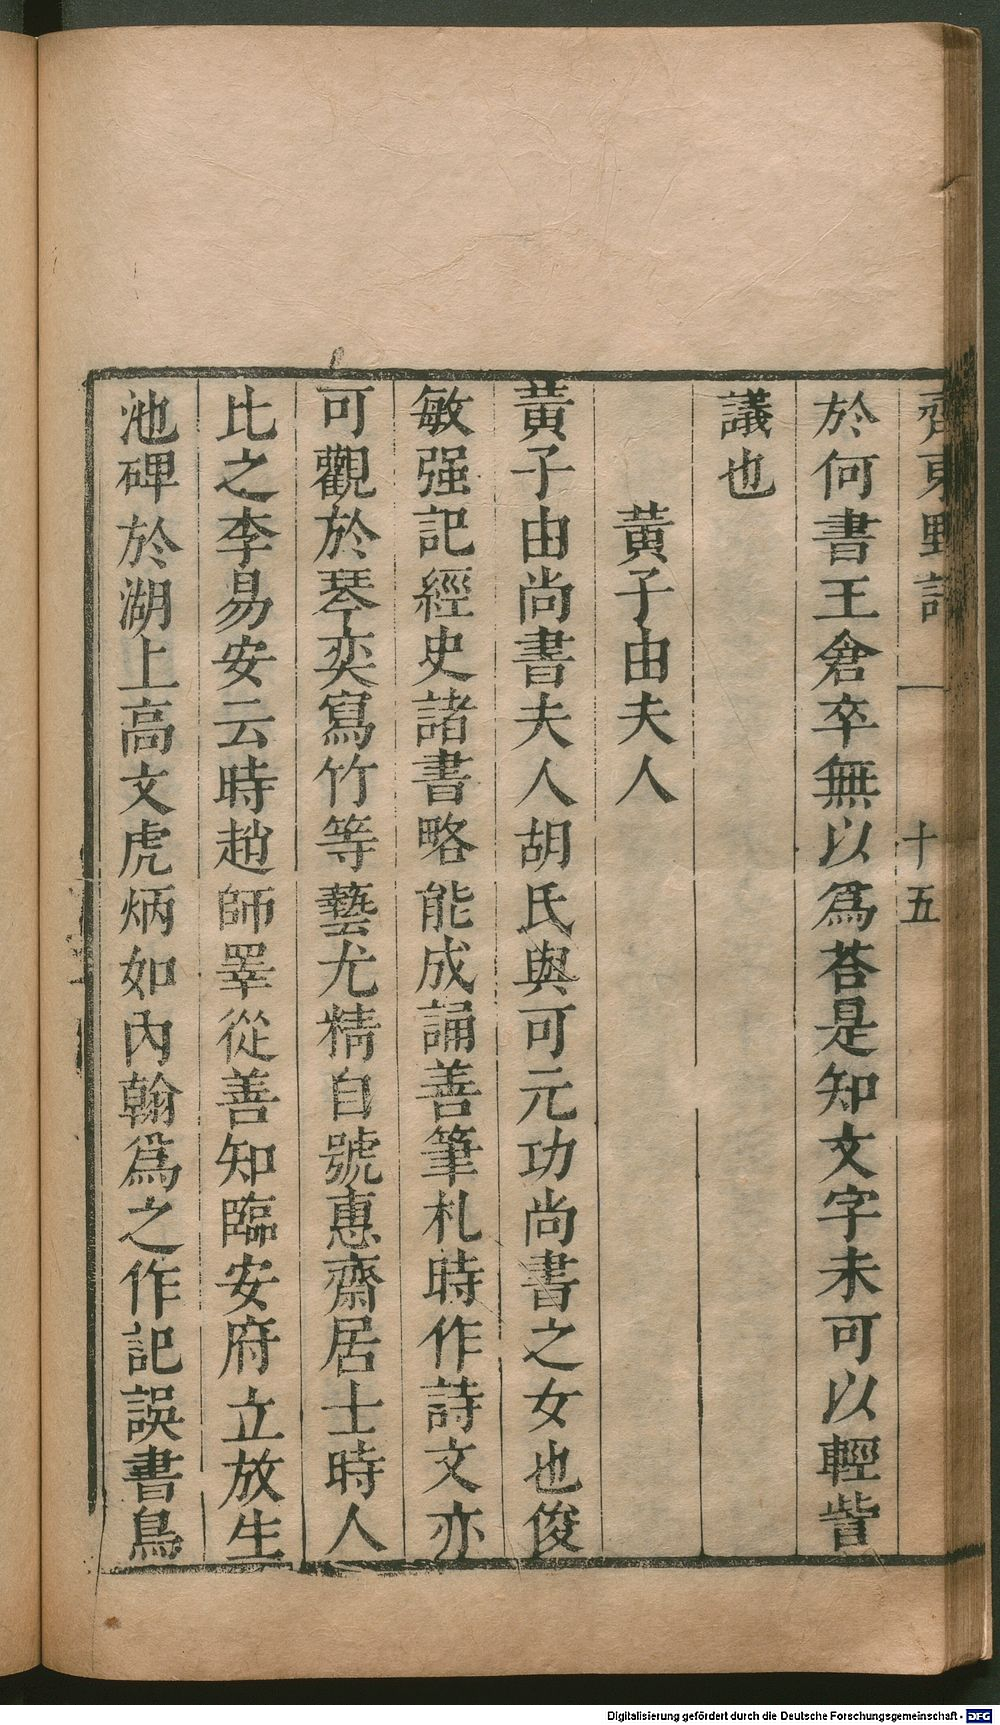 齊東野語 一 十五
於何書王倉卒無以爲荅是知文字未可以輕訾
議也
黃子由夫人
黃子由尚書夫人胡氏與可元功尚書之女也俊
敏强記經史諸書略能成誦善筆札時作詩文亦
可觀於琴奕寫竹等藝尤精自號惠齋居士時人
比之李易安云時趙師睪從善知臨安府立放生
池碑於湖上高文虎炳如內翰爲之作記誤書鳥
Digitalisierung gefördert durch die Deutsche Forschungsgemeinschaft - DFG